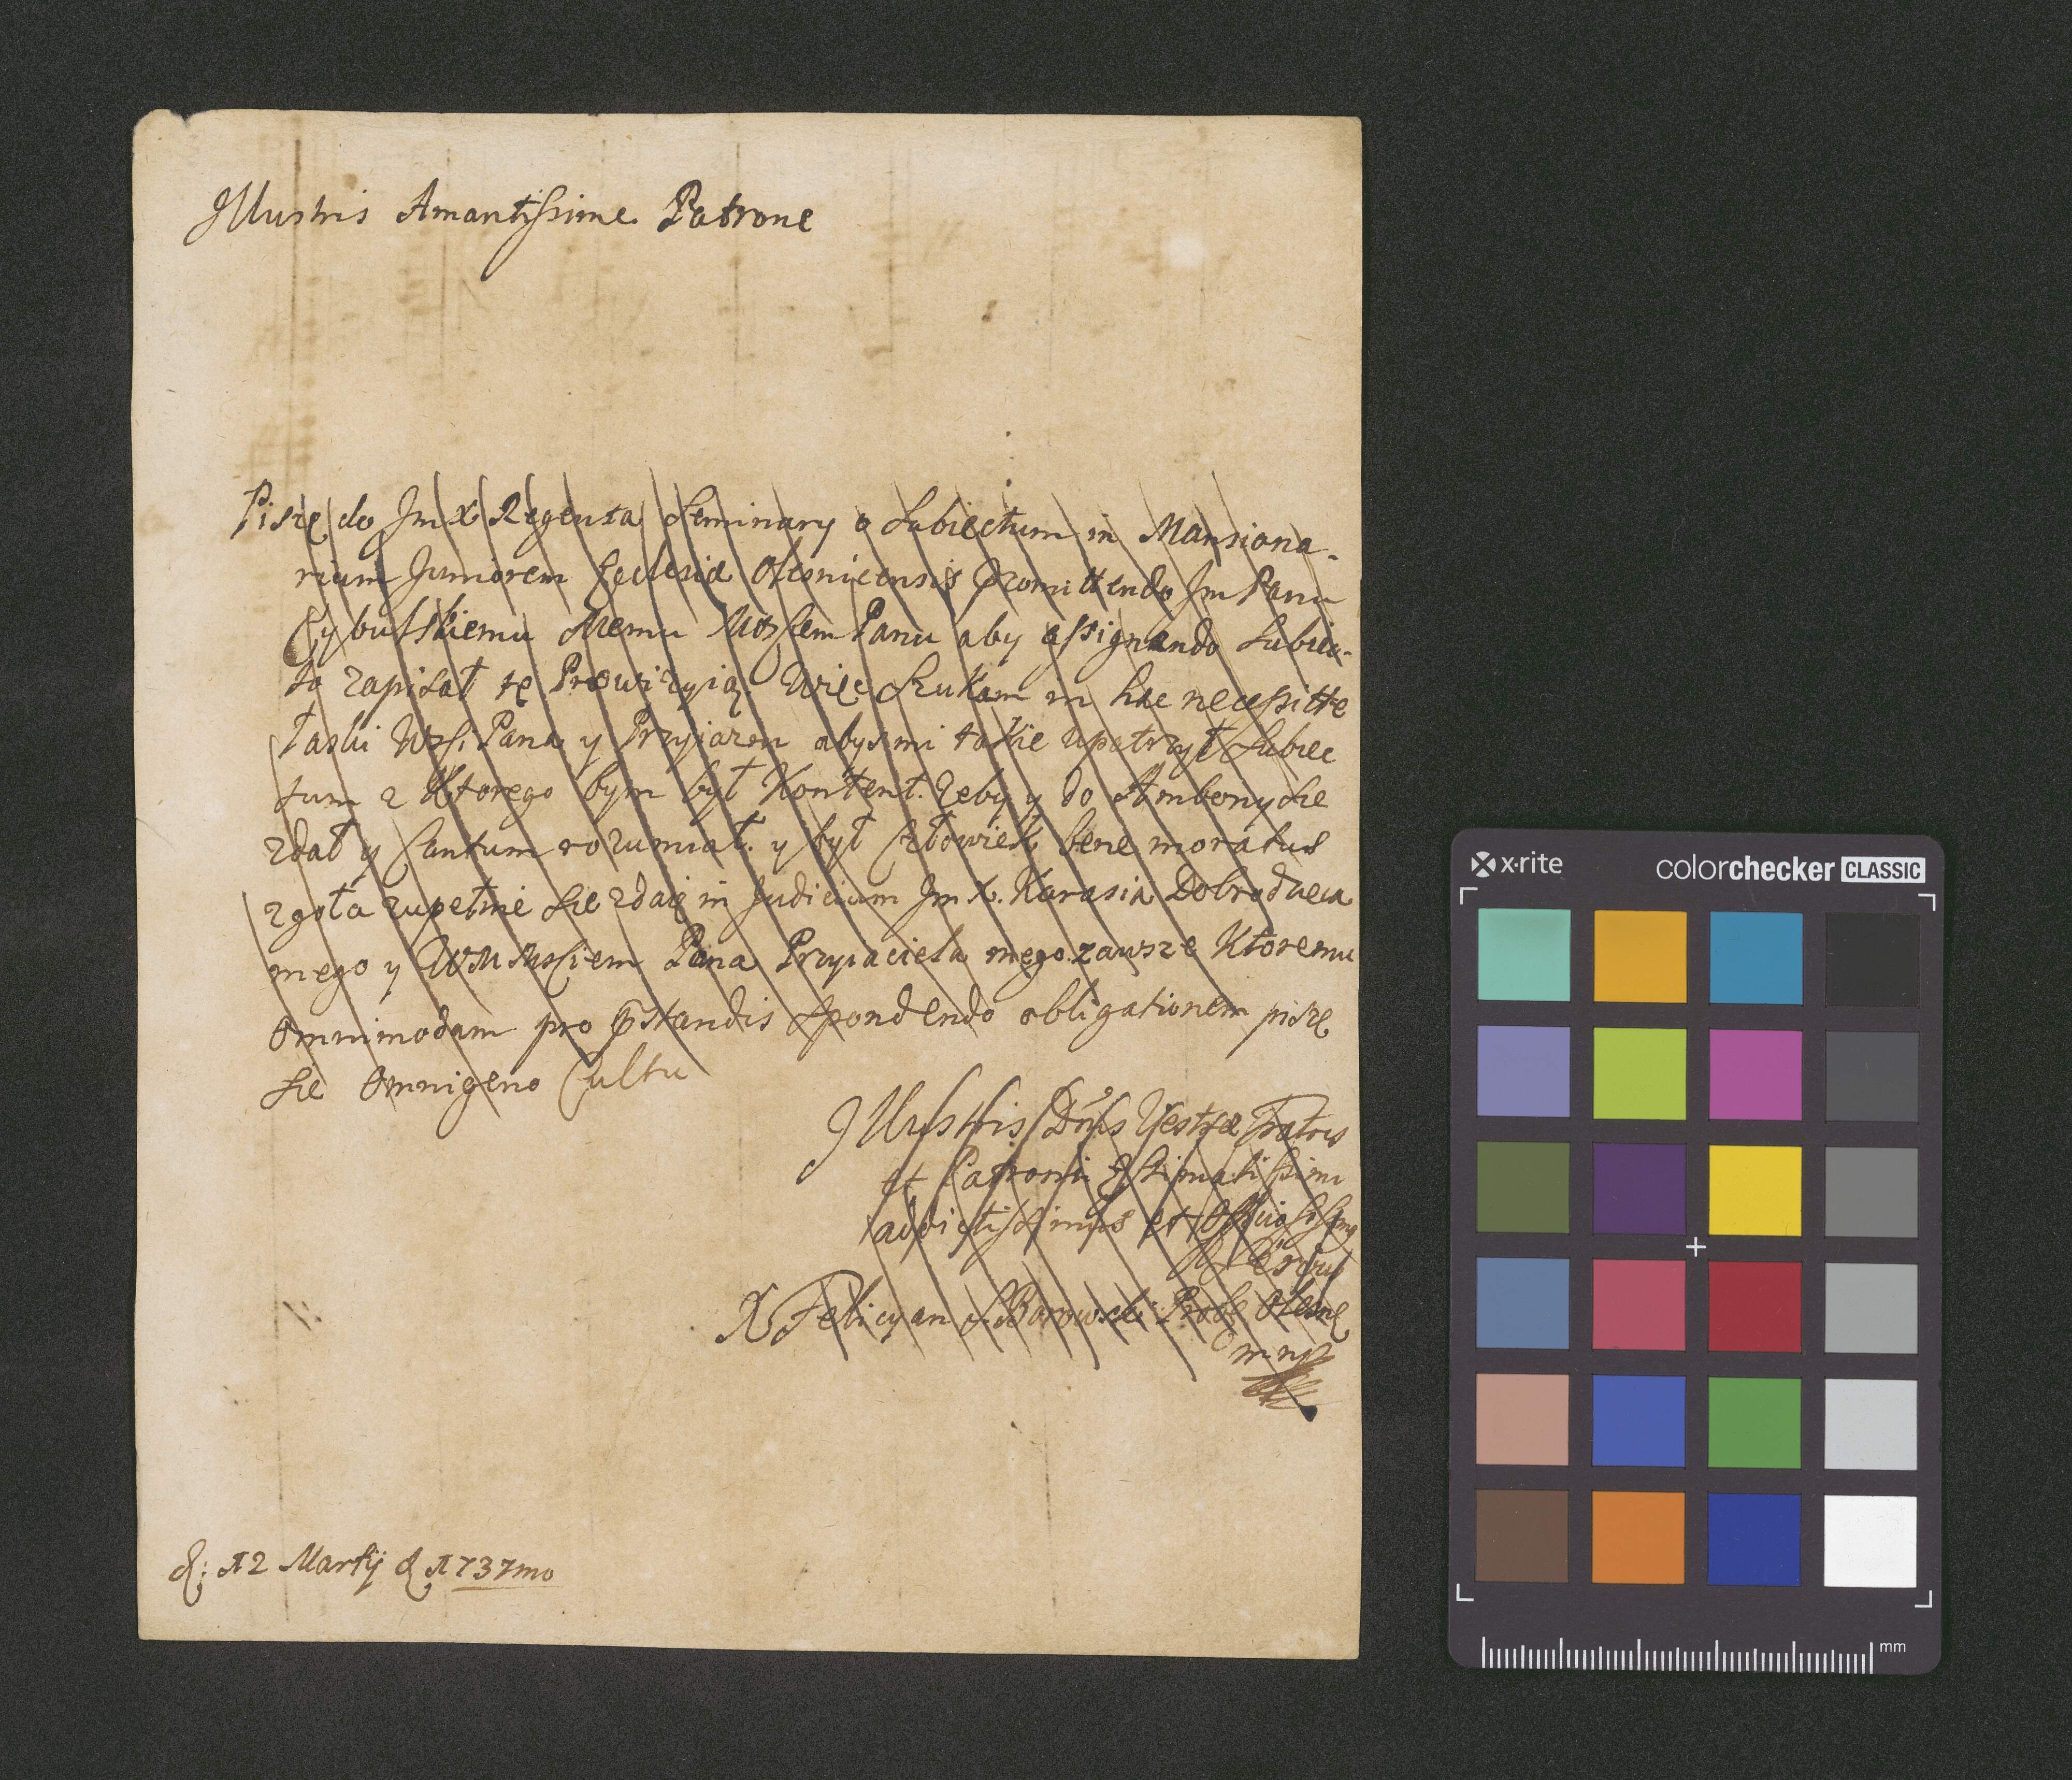 Illustris Amantissime Patrone
Piszę do Jm X Regenta Seminary o Subiectum in Mansiona-
rium Juniorem Ecclesiæ Olesnicensis Promittendo Jm Panu
Cybulskiemu Memu Panu aby assignando Subiec-
to zapisał tę Prowizyią. Więc Szukam in hac necessitte
łaski Pana y Przyiazni abys mi takie upatrzył Subiec
tum z Ktorego bym był Kontent. Zeby y do Ambony sie
zdał y Cantum rozumiał. y był Człowiek bene moratus
zgoła zupełnie sie zdaię in Judicium Jm X. Karasia Dobrodzieia
mego y Pana Przyiaciela mego zawsze Ktoremu
Omnimodam pro spondendo obligationem piszę
sie Omnigeno Cultu
Illustris Dnis Vestræ Fratris
et Patroni Æstimatissimi
addictissimus et
X Felicyan Borowski
mp
d: 12 Martij 1737mo
x·rite
colorchecker CLASSIC
mm